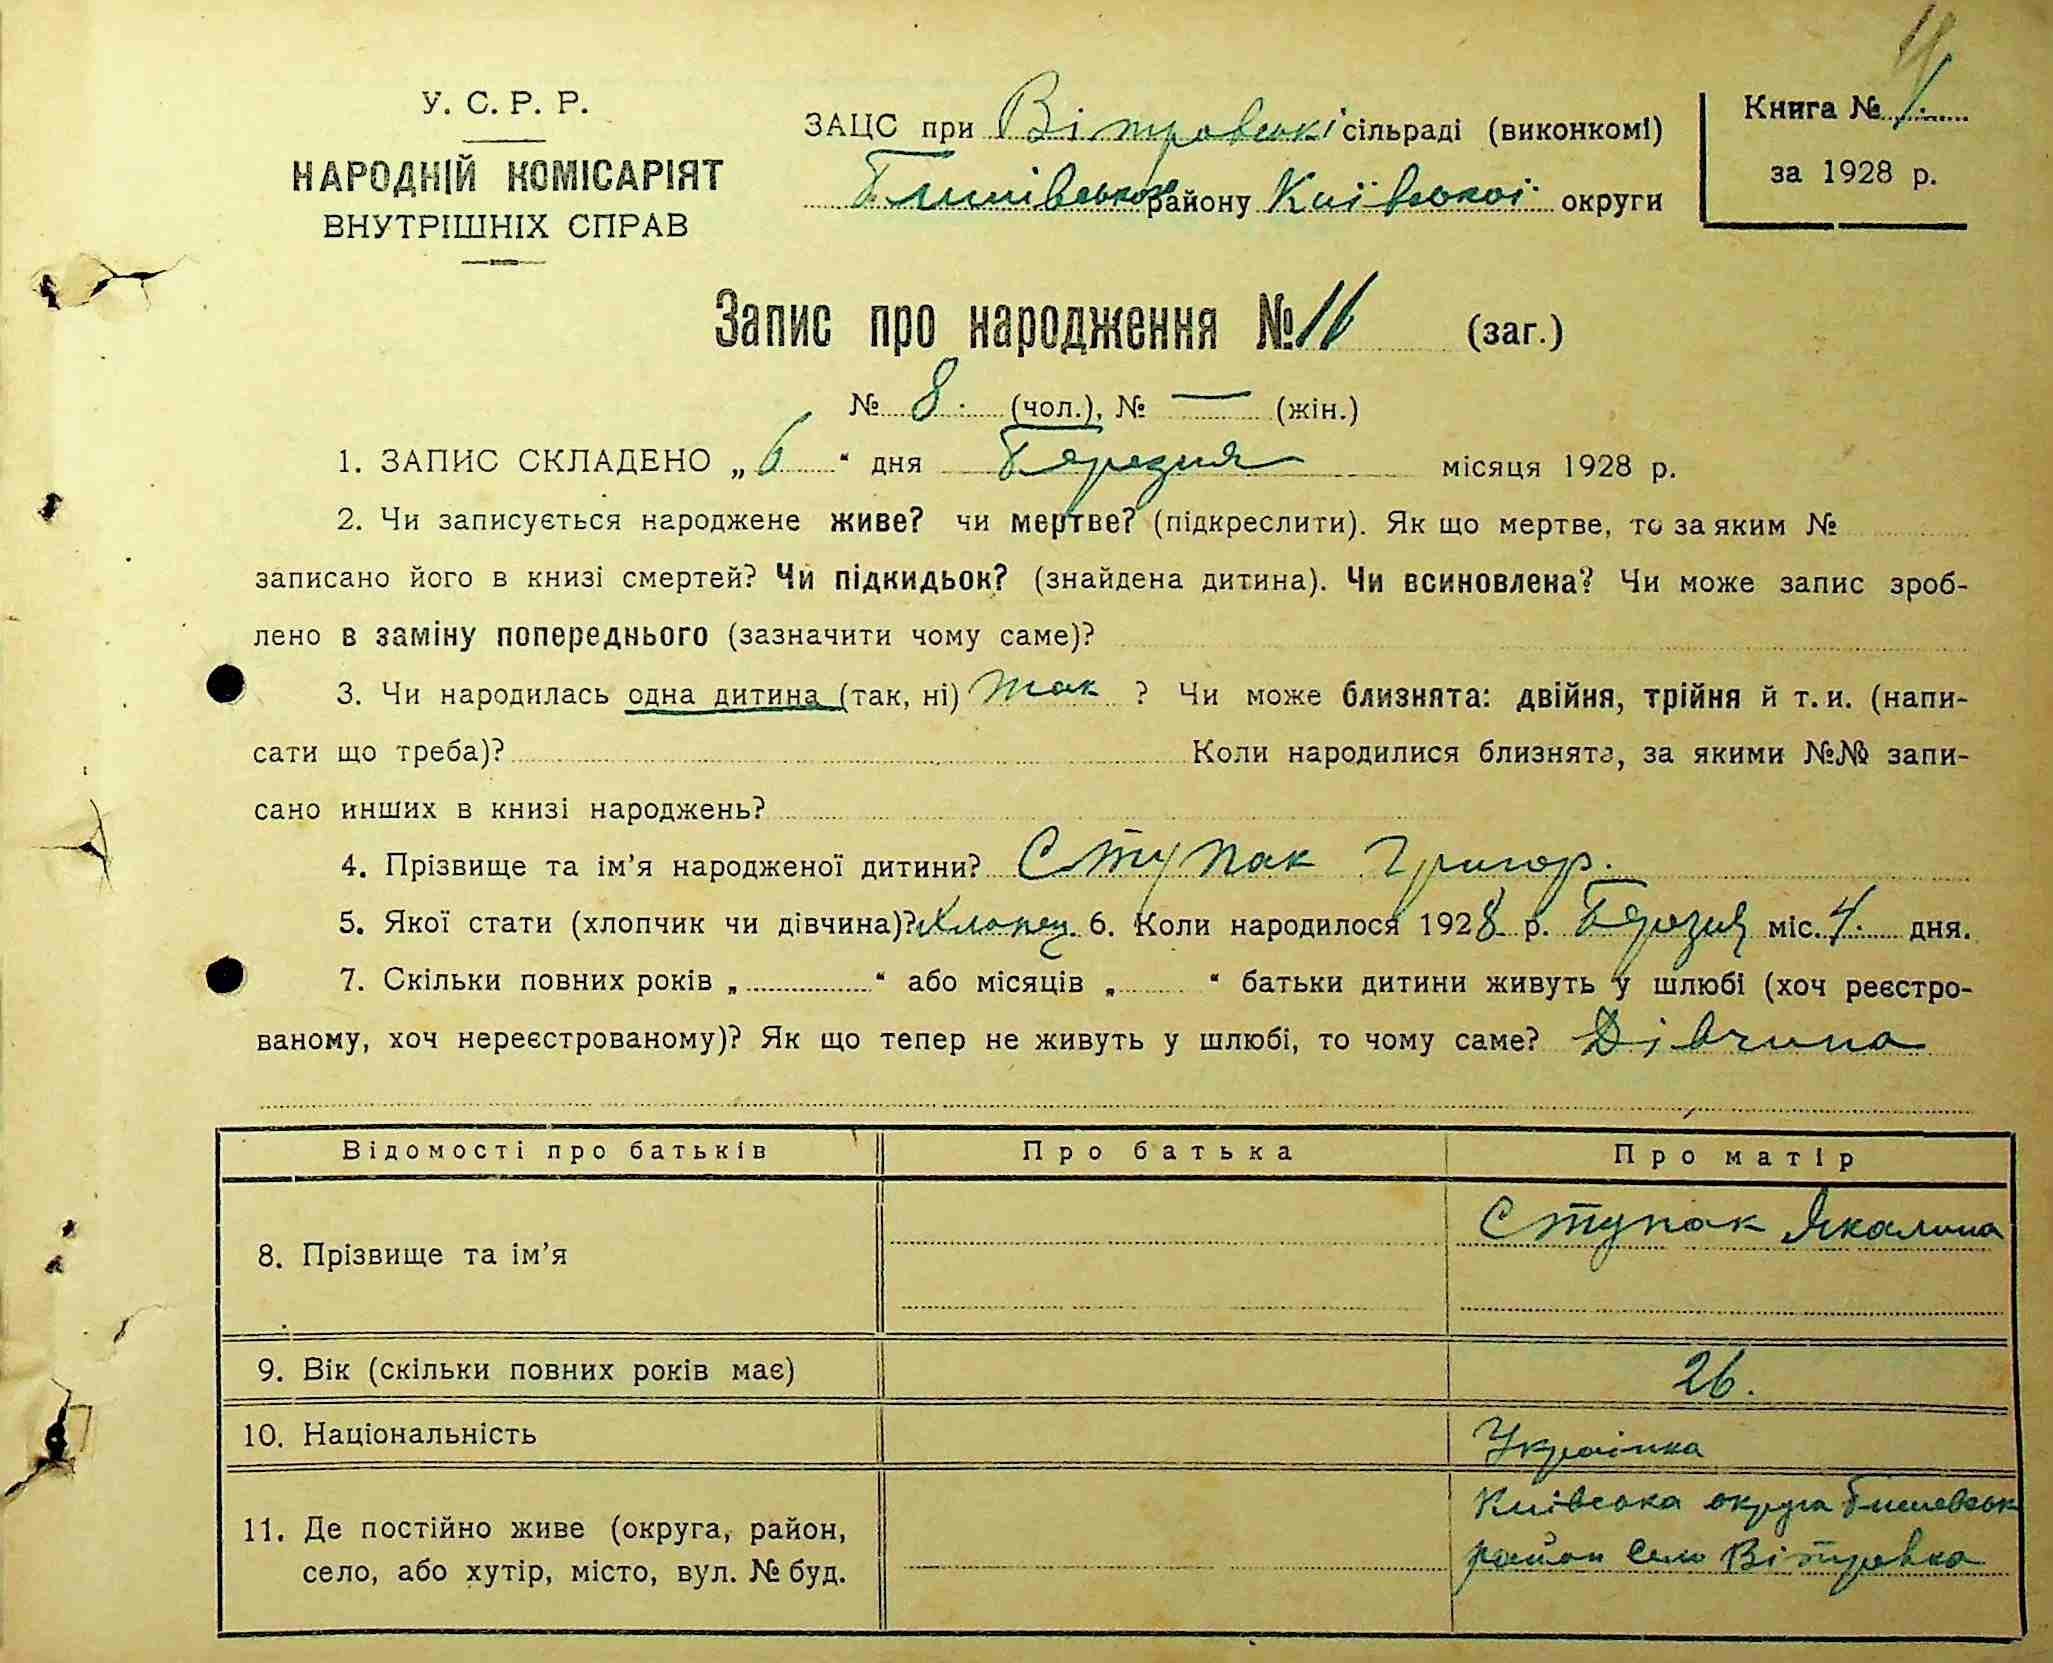 У. С. Р. Р.
НАРОДНІЙ КОМІСАРІЯТ
ВНУТРІШНІХ СПРАВ
ЗАЦС при Вітровські сільраді (виконкомі)
району Київської округи
Книга № 1.
за 1928 р.
Запис про народження № 16 (заг.)
№ 8. (чол.), № — (жін.)
1. ЗАПИС СКЛАДЕНО „ 6 “ дня Березня місяця 1928 р.
2. Чи записується народжене живе? чи мертве? (підкреслити). Як що мертве, то за яким №
записано його в книзі смертей? Чи підкидьок? (знайдена дитина). Чи всиновлена? Чи може запис зроб-
лено в заміну попереднього (зазначити чому саме)?
3. Чи народилась одна дитина (так, ні) так ? Чи може близнята: двійня, трійня й т. и. (напи-
сати що треба)? Коли народилися близнята, за якими №№ запи-
сано инших в книзі народжень?
4. Прізвище та ім’я народженої дитини? Ступак Григор.
5. Якої стати (хлопчик чи дівчина)? Хлопец. 6. Коли народилося 1928 р. Березня міс. 4. дня.
7. Скільки повних років „ “ або місяців „ “ батьки дитини живуть у шлюбі (хоч реєстро-
ваному, хоч нереєстрованому)? Як що тепер не живуть у шлюбі, то чому саме? Дівчина
Відомості про батьків Про батька Про матір
8. Прізвище та ім’я Ступак Якалина
9. Вік (скільки повних років має) 26.
10. Національність Українка
11. Де постійно живе (округа, район,
село, або хутір, місто, вул. № буд.
Київська округа
район село Вітровка